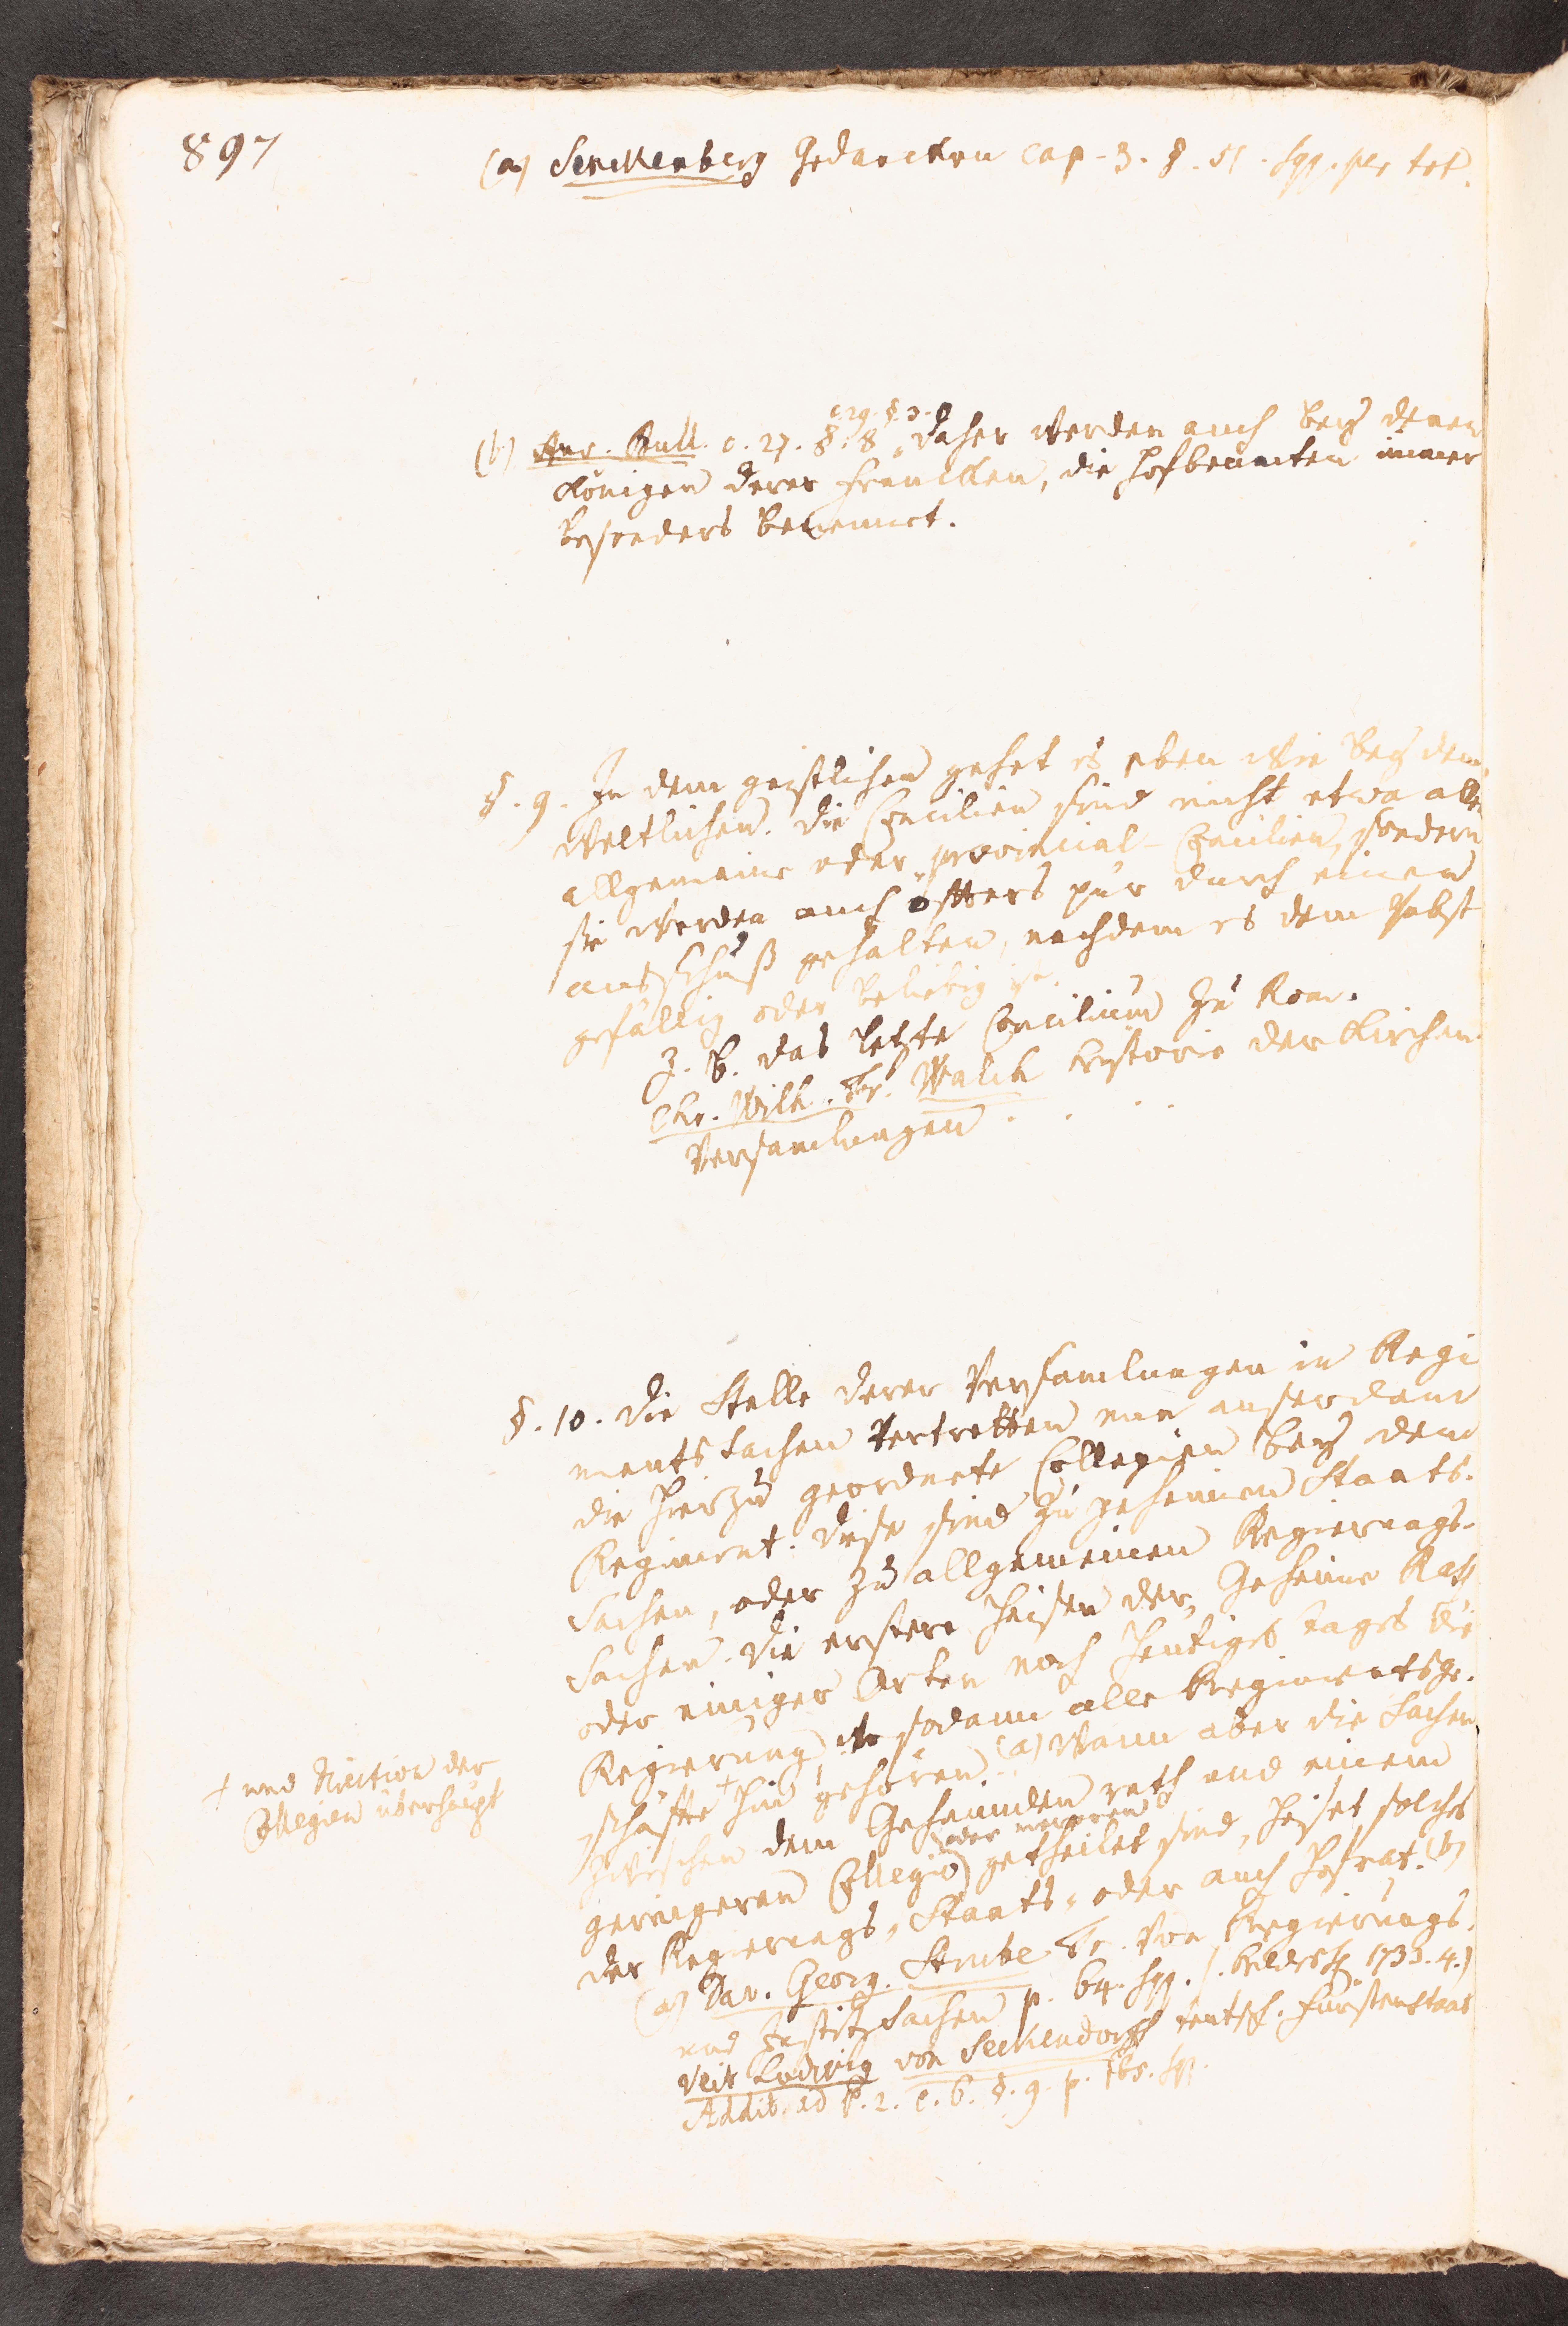 897
(a) Senckenberg Gedancken cap. 3. §. 51. sqq. per tot.
c. 29. §. 3.
(b) Aur. Bull. c. 27. §. 8 Daher werden auch bey denen
Königen derer Francken, die Hofbeamten immer
besonders benennt.
§. 9. In dem geistlichen gehet es eben wie bey dem
Weltlichen. Die Concilien sind nicht etwa alle
allgemeine oder provincial-Concilien, sondern
sie werden auch öffters pur durch einen
ausschuß gehalten, nachdem es dem Pabst
gefällig oder beliebig ist.
Z. B. das letzte Concilium zu Rom.
Chr. Wilh. Fr. Walch Historie der Kirchen-
Versamlungen . . . .
§. 10. Die Stelle derer Versamlungen in Regi
ments Sachen vertretten nun ausserdem
die hierzu geordnete Collegien bey dem
Regiment. Diese sind zu geheimen Staats-
Sachen, oder zu allgemeinen Regierungs-
Sachen. Die erstere heisen der Geheime Rath
oder einiger Orten noch heutiges tages die
Regierung, wo sodann alle Regimentsge-
schäffte + hin gehören. (a) Wann aber die Sachen
zwischen dem Geheimden rath und einem
oder mereren
geringeren Collegio getheilet sind, heiset solches
der Regierungs-, Staats- oder auch Hofrat. (b)
+ und Direction der
Collegien überhaupt
(a) Dav. Georg. Strube Tr. von Regierungs-
und Justitz Sachen p. 64. sqq. (. Hildesh. 1733. 4.)
Veit Ludwig von Seckendorff teutsch. Fürstenstaat
Addit. ad P. 2. c. 6. §. 9. p. sqq.